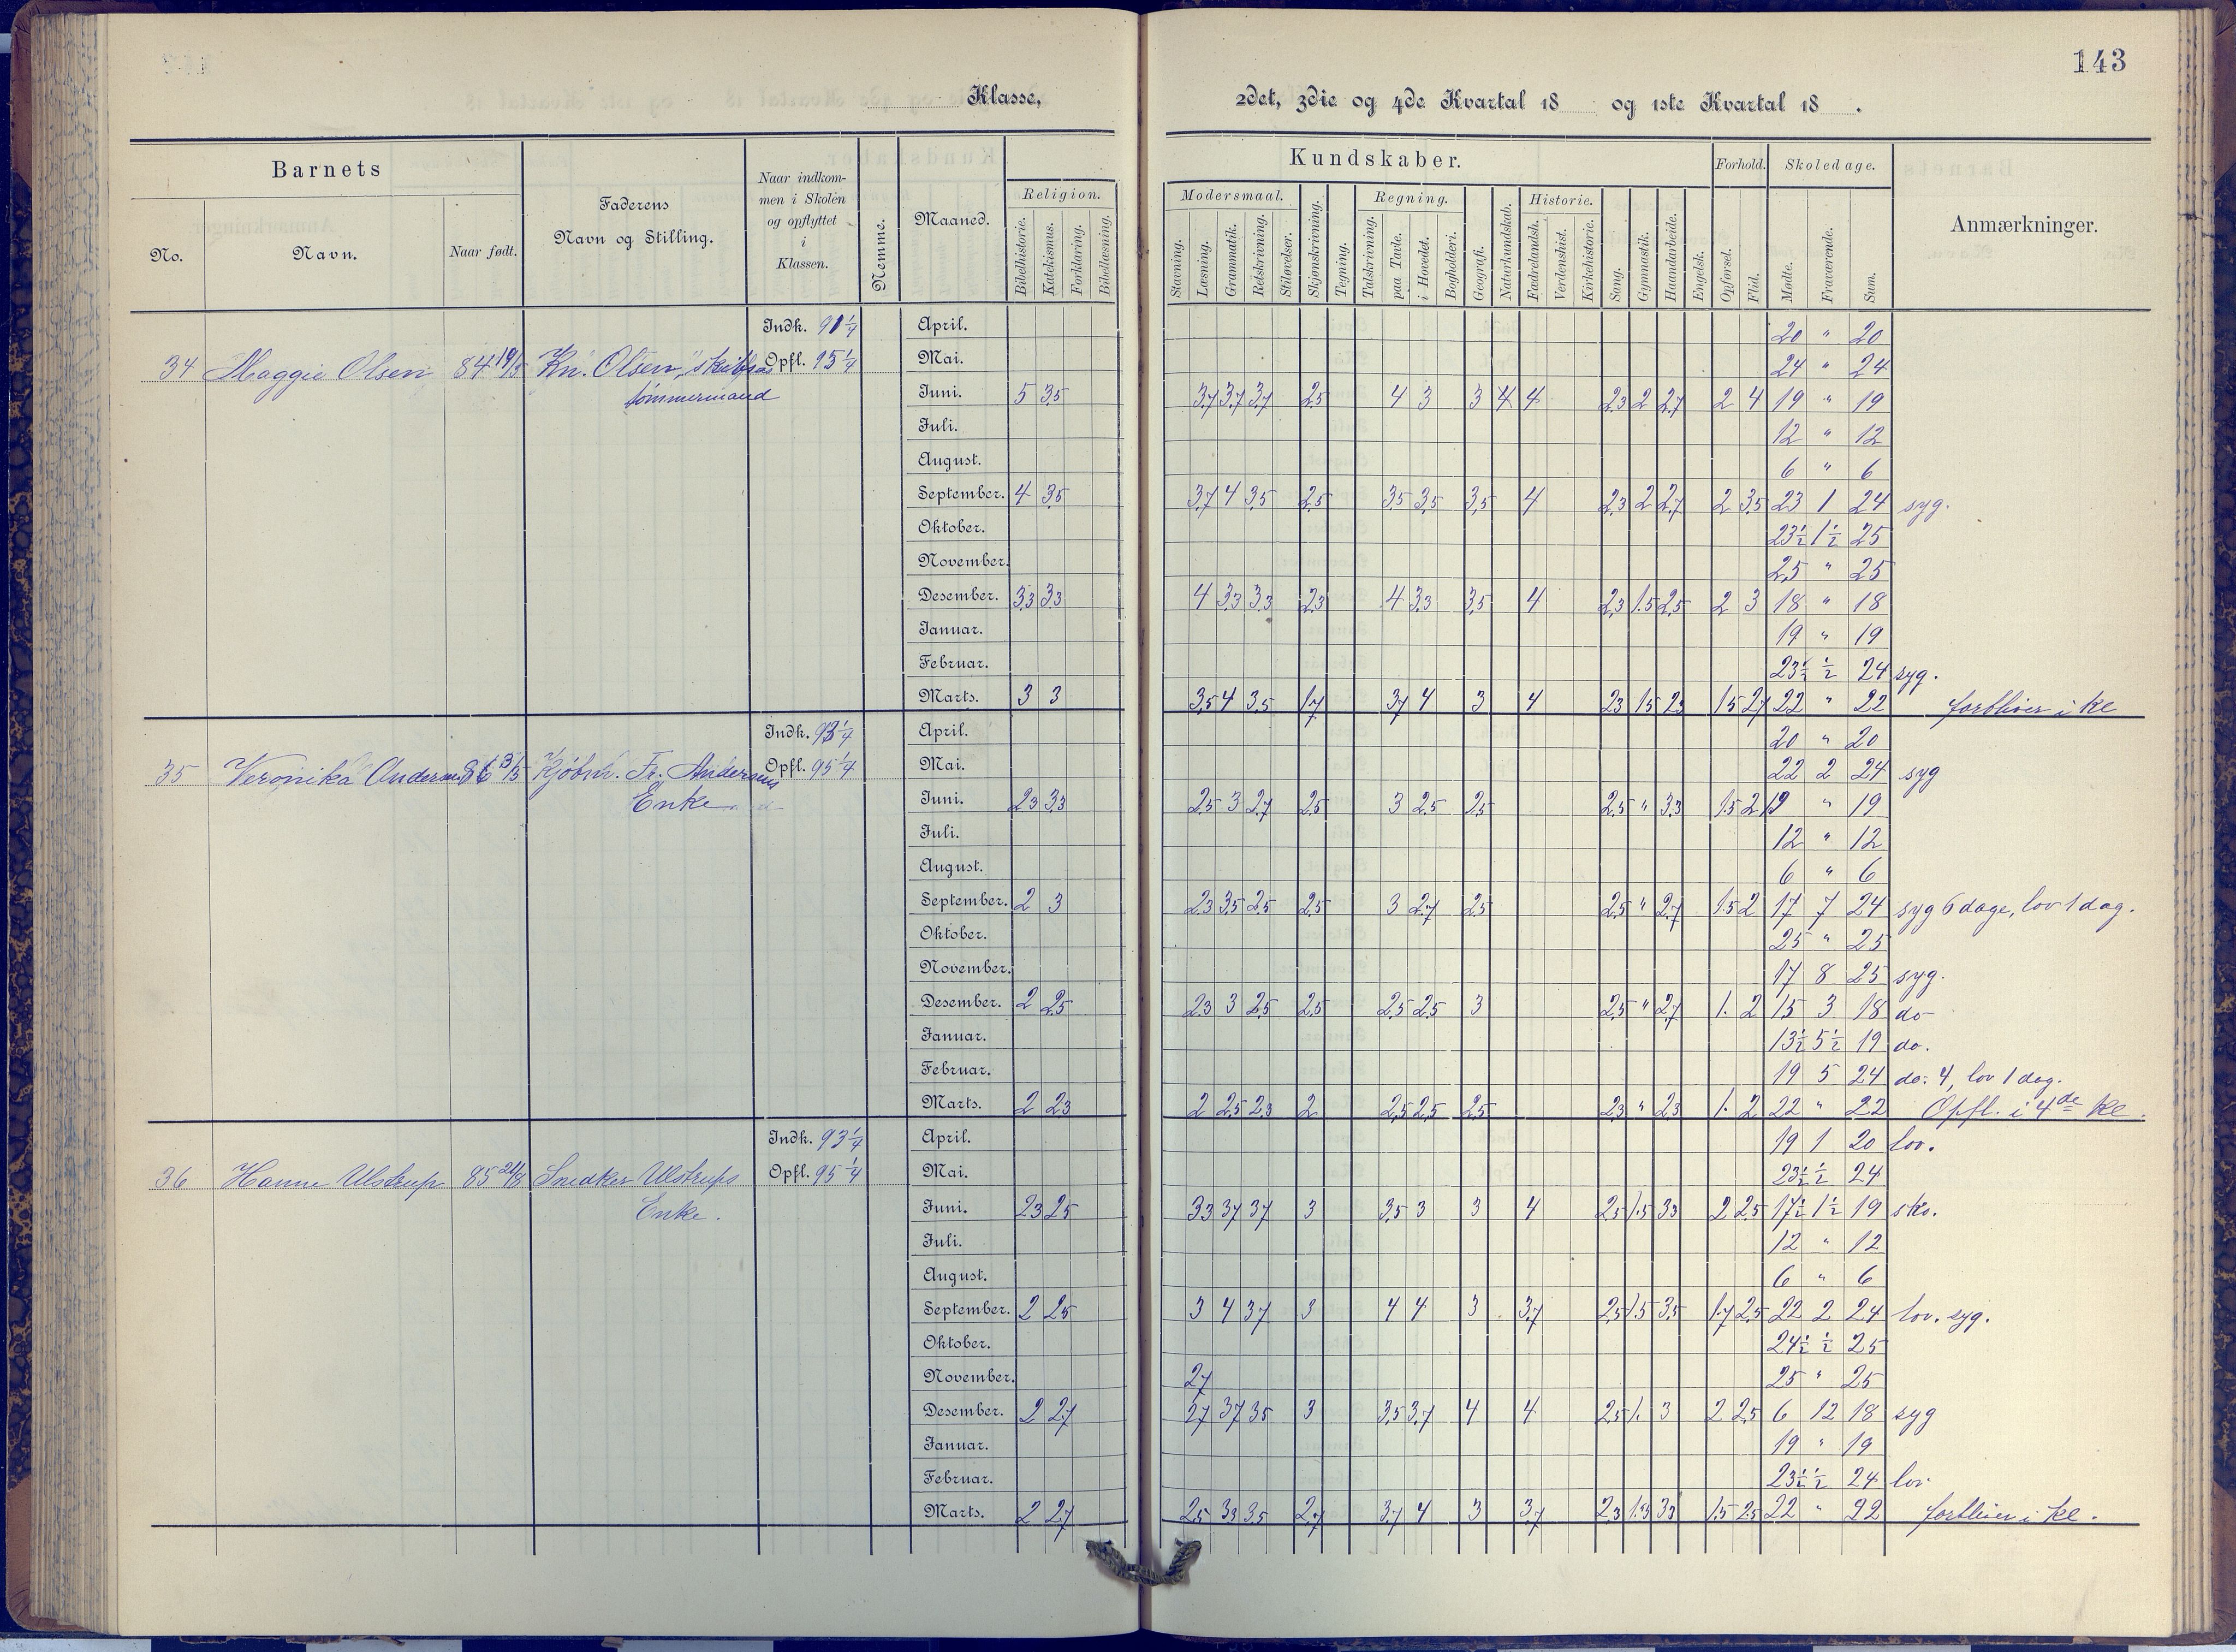 143
Klasse,
2det, 3die og 4de Kvartal 18 og 1ste Kvartal 18 .
Barnets
Faderens
Navn og Stilling.
Naar indkom-
men i Skolen
og opflyttet
i
Klassen.
Nemme.
Maaned.
Religion.
Kundskaber.
Forhold.
Skoledage.
Anmærkninger.
No.
Navn.
Naar født.
Bibelhistorie.
Katekismus.
Forklaring.
Bibellæsning.
Modersmaal.
Regning.
Historie.
Stavning.
Læsning.
Grammatik.
Retskrivning.
Stiløvelser.
Skjønskrivning.
Tegning.
Talskrivning.
paa Tavle.
i Hovedet.
Bogholderi.
Geografi.
Naturkundskab.
Fædrelandsh.
Verdenshist.
Kirkehistorie.
Sang.
Gymnastik.
Haandarbeide.
Engelsk.
Opførsel.
Flid.
Mødte.
Fraværende.
Sum.
Indk. 91 1/4 April. 20 " 20
34 Maggie Olsen 84 19/5 Kn. Olsen, skibs= Opfl. 95 1/4 Mai. 24 " 24
tømmermand Juni. 5 3,5 3,7 3,7 3,7 2,5 4 3 3 4 4 2,3 2 2,7 2 4 19 " 19
Juli. 12 " 12
August. 6 " 6
September. 4 3,5 3,7 4 3,5 2,5 3,5 3,5 3,5 4 2,3 2 2,7 2 3,5 23 1 24 syg.
Oktober. 23 1/2 1 1/2 25
November. 25 " 25
Desember. 3,3 3,3 4 3,3 3,3 2,3 4 3,3 3,5 4 2,3 1.5 2,5 2 3 18 " 18
Januar. 19 " 19
Februar. 23 1/2 1/2 24 syg.
Marts. 3 3 3,5 4 3,5 1,7 3,7 4 3 4 2,3 1,5 2,3 1,5 2,7 22 " 22 forbliver i kl
Indk. 93 1/4 April. 20 " 20
35 Veronika Andersen 86 3/5 Kjøbm. Fr. Andersens Opfl. 95 1/4 Mai. 22 2 24 syg
Enke Juni. 2,3 3,3 2,5 3 2,7 2,5 3 2,5 2,5 2,5 " 3,3 1.5 2 19 " 19
Juli. 12 " 12
August. 6 " 6
September. 2 3 2,3 3,5 2,5 2,5 3 2,7 2,5 2,5 " 2,7 1.5 2 17 7 24 syg 6 dage, lov 1 dag.
Oktober. 25 " 25
November. 17 8 25 syg.
Desember. 2 2,5 2,3 3 2,5 2,5 2,5 2,5 3 2,5 " 2,7 1. 2 15 3 18 do
Januar. 13 1/2 5 1/2 19 do.
Februar. 19 5 24 do. 4, lov 1 dag.
Marts. 2 2,3 2 2,5 2,3 2 2,5 2,5 2,5 2,3 " 2,3 1. 2 22 " 22 Opfl. i 4de kl.
Indk. 93 1/4 April. 19 1 20 lov.
36 Hanne Ulstrup 85 21/8 Snedker Ulstrups Opfl. 95 1/4 Mai. 23 1/2 1/2 24
Enke. Juni. 2,3 2,5 3,3 3,7 3,7 3 3,5 3 3 4 2,5 1.5 3,3 2 2,5 17 1/2 1 1/2 19 sko.
Juli. 12 " 12
August. 6 " 6
September. 2 2,5 3 4 3,7 3 4 4 3 3,7 2,5 1.5 3,5 1,7 2,5 22 2 24 lov. syg.
Oktober. 24 1/2 1/2 25
November. 2,7 25 " 25
Desember. 2 2,7 2,7 3,7 3,5 3 3,5 3,7 4 4 2,5 1. 3 2 2,5 6 12 18 syg
Januar. 19 " 19
Februar. 23 1/2 1/2 24 lov
Marts. 2 2,7 2,5 3,3 3,5 2,7 3,7 4 3 3,7 2,3 1.3 3,3 1.5 2,5 22 " 22 forbliver i kl.